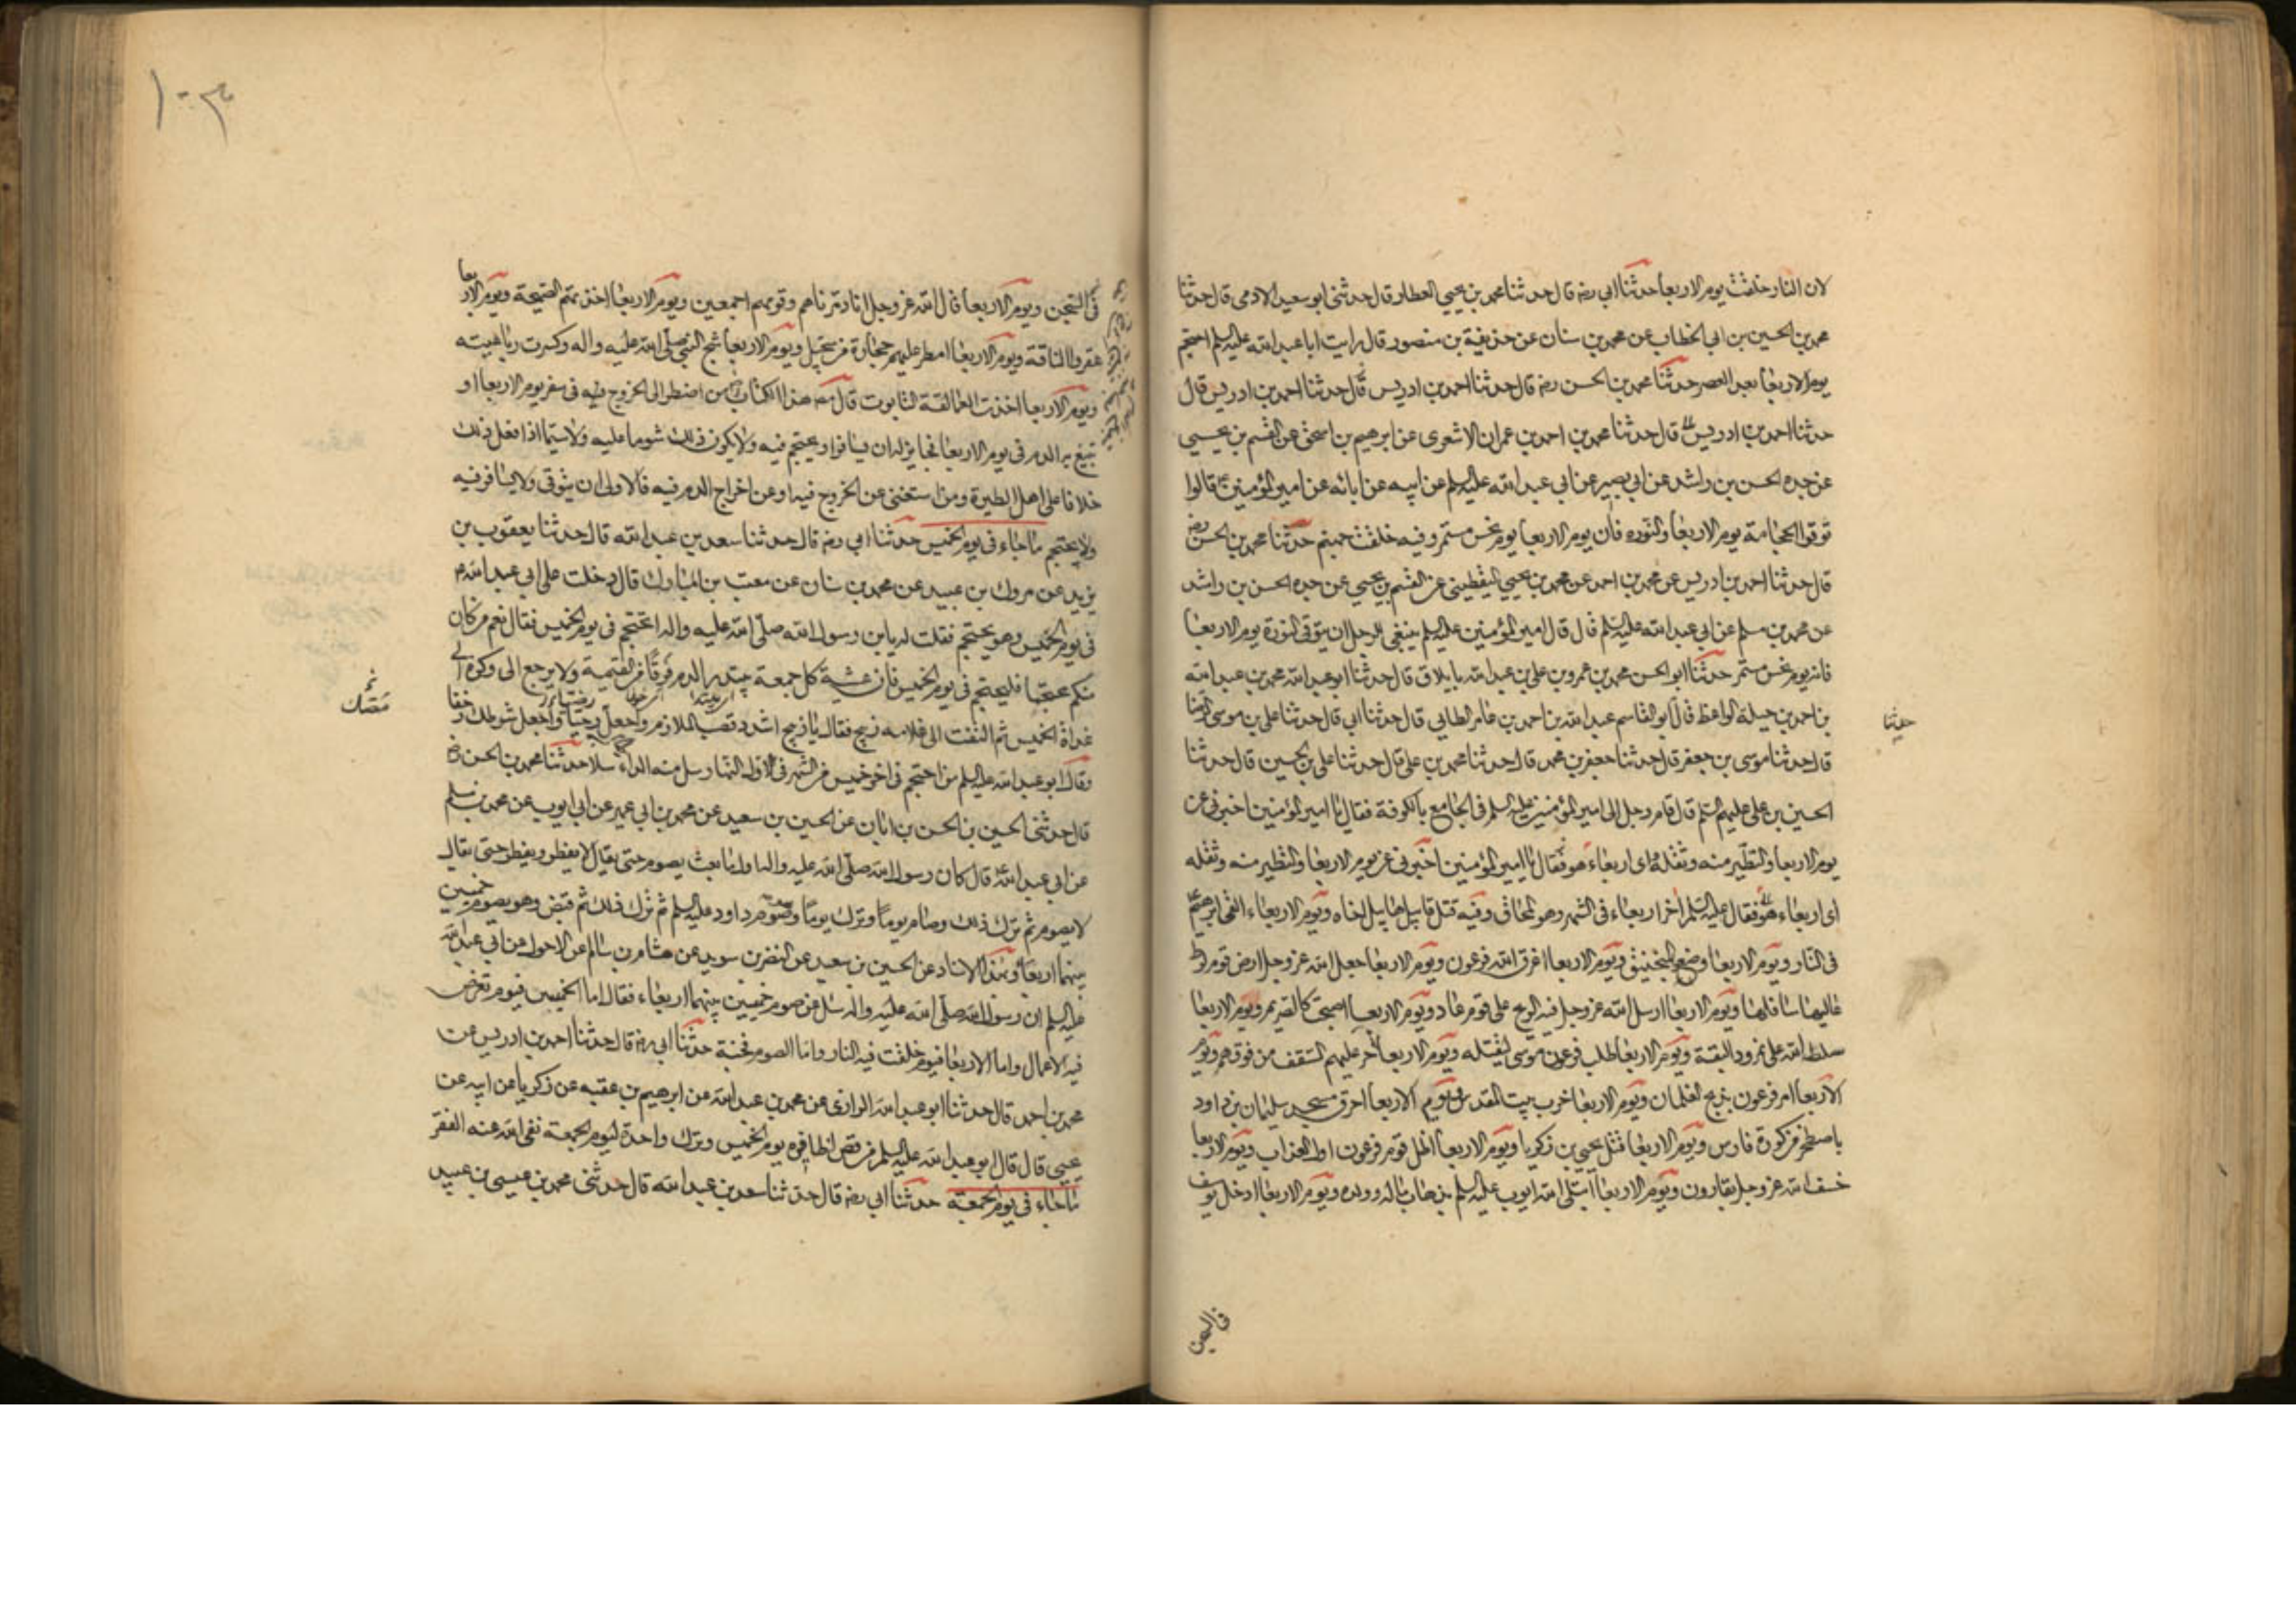 لان النار خلقت يوم الاربعا حدثنا ابي رضه قال حدثنا محمد بن يحيى العطار قال حدثنى ابو سعيد الادمى قال حدثنا
محمد بن الحسين بن ابى الخطاب عن محمد بن سنان عن حذيفة بن منصور قال رايت ابا عبد الله عليه السلم احتجم
يوم الاربعا بعد العصر حدثنا محمد بن الحسن رضه قال حدثنا احمد بن ادريس قال حدثنا احمد بن ادريس قال
حدثنا احمد بن ادريس قال حدثنا محمد بن احمد بن عمران الاشعرى عن ابرهيم بن اسحق عن القسم بن يحيى
عن جده الحسن بن راشد عن ابى بصير عن ابى عبد الله عليه السلم عن ابيه عن ابائه عن امير المؤمنين قالوا
توقوا الحجامة يوم الاربعا والنوره فان يوم الاربعا يوم نحس مستمر وفيه خلقت جهنم حدثنا محمد بن الحسن رضه
قال حدثنا احمد بن ادريس عن محمد بن احمد عن محمد بن يحيى اليقطينى عن القسم بن يحيى عن جده الحسن بن راشد
عن محمد بن مسلم عن ابى عبد الله عليه السلم قال قال امير المؤمنين عليه السلم ينبغى للرجل ان يتوقى النورة يوم الاربعا
فانه يوم نحس مستمر حدثنا ابو الحسن محمد بن عمرو بن على بن عبد الله بايلاق قال حدثنا ابو عبد الله محمد بن عبد الله
بن احمد بن جبلة الواعظ قال ابو القاسم عبد الله بن احمد بن عامر الطايى قال حدثنا ابى قال حدثنا على بن موسى الرضا
حدثنا
قال حدثنا موسى بن جعفر قال حدثنا جعفر بن محمد قال حدثنا محمد بن على قال حدثنا على بن الحسين قال حدثنا
الحسين بن على عليهم السلم قال قام رجل الى امير المؤمنين عليه السلم فى الجامع بالكوفة فقال يا امير المؤمنين اخبرنى عن
يوم الاربعا والتطير منه وثقله اى اربعاء هو فقال يا امير المؤمنين اخبرنى عن يوم الاربعا والتطير منه وثقله
اى اربعاء هو فقال عليه السلم اخر اربعاء فى الشهر وهو المحاق وفيه قتل قابيل هابيل اخاه ويوم الاربعاء القى ابرهيم
فى النار ويوم الاربعا وضع المنجنيق ويوم الاربعا اغرق الله فرعون ويوم الاربعا جعل الله عز وجل ارض قوم لوط
عاليها سافلها ويوم الاربعا ارسل الله عز وجل فيه الريح على قوم عاد ويوم الاربعا اصبحت كالصريم ويوم الاربعا
سلط الله على نمرود البقة ويوم الاربعا طلب فرعون موسى ليقتله ويوم الاربعا خر عليهم السقف من فوقهم ويوم
الاربعا امر فرعون بذبح الغلمان ويوم الاربعا خرب بيت المقدس ويوم الاربعا احرق مسجد سليمان بن داود
باصطخر من كورة فارس ويوم الاربعا قتل يحيى بن زكريا ويوم الاربعا اظل قوم فرعون اول العذاب ويوم الاربعا
خسف الله عز وجل بقارون ويوم الاربعا ابتلى الله ايوب عليه السلم بذهاب ماله وولده ويوم الاربعا ادخل يوسف
فى السجن
١٠٣
فى السجن ويوم الاربعا قال الله عز وجل انا دمرناهم وقومهم اجمعين ويوم الاربعا اخذتهم الصيحة ويوم الاربعا
عقروا الناقة ويوم الاربعا امطر عليهم حجارة من سجيل ويوم الاربعا شج النبى صلى الله عليه واله وكسرت رباعيته
ويوم الاربعا اخذت العمالقة التابوت قال مصنف هذا الكتاب من اضطر الى الخروج فيه فى سفر يوم الاربعا او
تبيغ به الدم فى يوم الاربعا فجايز له ان يسافر او يحتجم فيه ولا يكون ذلك شوما عليه ولا سيما اذا فعل ذلك
خلافا على اهل الطيرة ومن استغنى عن الخروج فيه او عن اخراج الدم فيه فالاولى ان يتوقى ولا يسافر فيه
ولا يحتجم ما جاء فى يوم الخميس حدثنا ابى رضه قال حدثنا سعد بن عبد الله قال حدثنا يعقوب بن
يزيد عن مروك بن عبيد عن محمد بن سنان عن معتب بن المبارك قال دخلت على ابى عبد الله ع
فى يوم الخميس وهو يحتجم فقلت له يا بن رسول الله صلى الله عليه واله اتحتجم فى يوم الخميس فقال نعم من كان
منكم محتجما فليحتجم فى يوم الخميس فان عشية كل جمعة يبتدر الدم فرقا من القيمة ولا يرجع الى وكره الى
غداة الخميس ثم التفت الى غلامه زينج فقال يا زينج اشدد قصب الملازم واجعل رخيا واجعل شرطك زحفا
وقال ابو عبد الله عليه السلم من احتجم فى اخر خميس من الشهر فى اول النهار سل منه الداء سلا حدثنا محمد بن الحسن رضه
قال حدثنى الحسين بن الحسن بن ابان عن الحسين بن سعيد عن محمد بن ابى عمير عن ابى ايوب عن محمد بن مسلم
عن ابى عبد الله ع قال كان رسول الله صلى الله عليه واله اول ما بعث يصوم حتى يقال لا يفطر ويفطر حتى يقال
لا يصوم ثم ترك ذلك وصام يوما وترك يوما وصوم داود عليه السلم ثم ترك ذلك ثم قبض وهو يصوم خميسين
بينهما اربعا وبهذا الاسناد عن الحسين بن سعيد عن النضر بن سويد عن هشام بن سالم عن الاحول عن ابى عبد الله
عليه السلم ان رسول الله صلى الله عليه واله سئل عن صوم خميسين بينهما اربعاء فقال اما الخميس فيوم تعرض
فيه الاعمال واما الاربعا فيوم خلقت فيه النار واما الصوم فجنة حدثنا ابى رضه قال حدثنا احمد بن ادريس عن
محمد بن احمد قال حدثنا ابو عبد الله الرازى عن محمد بن عبد الله عن ابرهيم بن عقبه عن زكريا عن ابيه عن
يحيى قال قال ابو عبد الله عليه السلم من قص اظافيره يوم الخميس وترك واحدة ليوم الجمعة نفى الله عنه الفقر
ما جاء فى يوم الجمعة حدثنا ابى رضه قال حدثنا سعد بن عبد الله قال حدثنى محمد بن عيسى بن عبيد